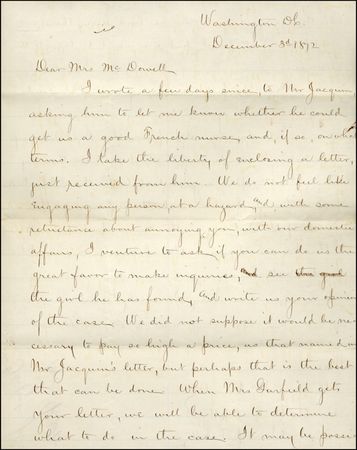 Washington D.C.
December 3d 1872
Dear Mrs McDowell
I wrote a few days since, to Mr Jacquin,
asking him to let me know whether he could
get us a good French nurse, and, if so, on what
terms. I take the liberty of enclosing a letter,
just received from him. We do not feel like
engaging any person, at a hazard, and, with some
reluctance about annoying you, with our domestic
affairs, I venture to ask if you can do us the
great favor to make inquiries, and see
the girl he has found, and write us your opinion
of the case. We did not suppose it would be ne-
cessary to pay so high a price, as that named in
Mr Jacquin's letter, but perhaps that is the best
that can be done. When Mrs Garfield gets
your letter, we will be able to determine
what to do in the case. It may be possi